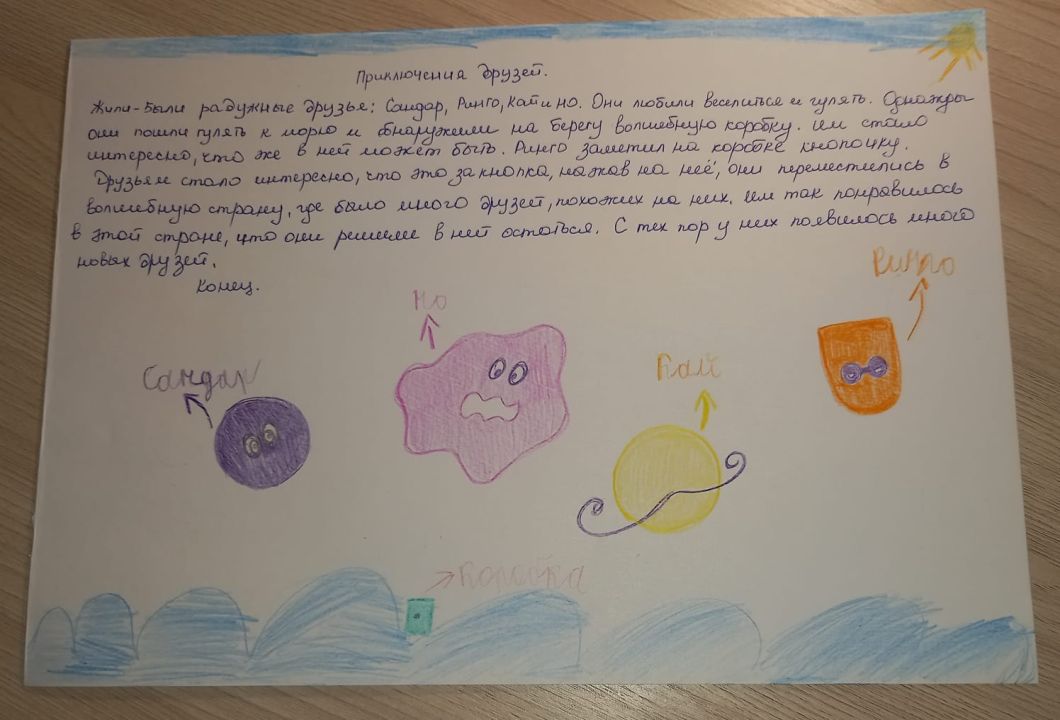 Приключения друзей.
Жили-были радужные друзья: Сандар, Ринго, Кай и но. Они любили веселиться и гулять. Однажды
они пошли гулять к морю и обнаружили на берегу волшебную коробку. им стало
интересно, что же в ней может быть. Ринго заметил на коробке кнопочку.
Друзьям стало интересно, что это за кнопка, нажав на неё, они переместились в
волшебную страну, где было много друзей, похожих на них. им так понравилось
в этой стране, что они решили в ней остаться. С тех пор у них появилось много
новых друзей.
Конец.
Ринго
но
Кай
Сандар
Коробка